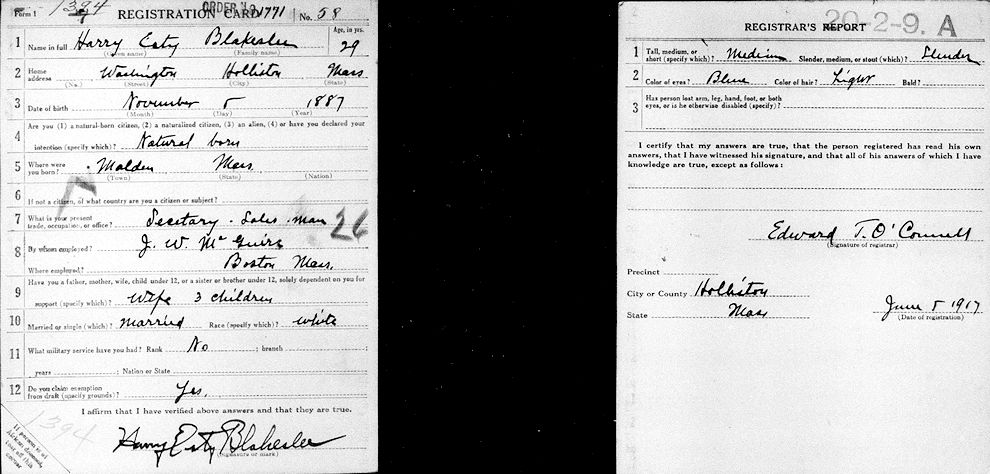 Form 1 1394 REGISTRATION CARD ORDER No. 1771 No. 58
1 Name in full Harry Esty Blakeslee Age, in yrs. 29
(Given name) (Family name)
2 Home address Washington Holliston Mass
(No.) (Street) (City) (State)
3 Date of birth November 5 1887
(Month) (Day) (Year)
Are you (1) a natural-born citizen, (2) a naturalized citizen, (3) an alien, (4) or have you declared your
4 intention (specify which)? Natural born
5 Where were you born? Malden Mass
(Town) (State) (Nation)
6 If not a citizen, of what country are you a citizen or subject?
7 What is your present trade, occupation, or office? Secetary - Sales - man 26
8 By whom employed? J. W. McGuire
Where employed? Boston Mass.
Have you a father, mother, wife, child under 12, or a sister or brother under 12, solely dependent on you for
9 support (specify which)? Wife 3 children
10 Married or single (which)? Married Race (specify which)? White
11 What military service have you had? Rank No ; branch ;
years ; Nation or State
12 Do you claim exemption from draft (specify grounds)? Yes.
I affirm that I have verified above answers and that they are true.
1394
Harry Esty Blakeslee
(Signature or mark)
If person is of
African descent,
tear off this
corner
20-2-9. A
REGISTRAR'S REPORT
1 Tall, medium, or short (specify which)? Medium Slender, medium, or stout (which)? Slender
2 Color of eyes? Blue Color of hair? Light Bald?
3 Has person lost arm, leg, hand, foot, or both
eyes, or is he otherwise disabled (specify)?
I certify that my answers are true, that the person registered has read his own
answers, that I have witnessed his signature, and that all of his answers of which I have
knowledge are true, except as follows:
Edward T. O'Connell
(Signature of registrar)
Precinct
City or County Holliston
State Mass June 5 1917
(Date of registration)